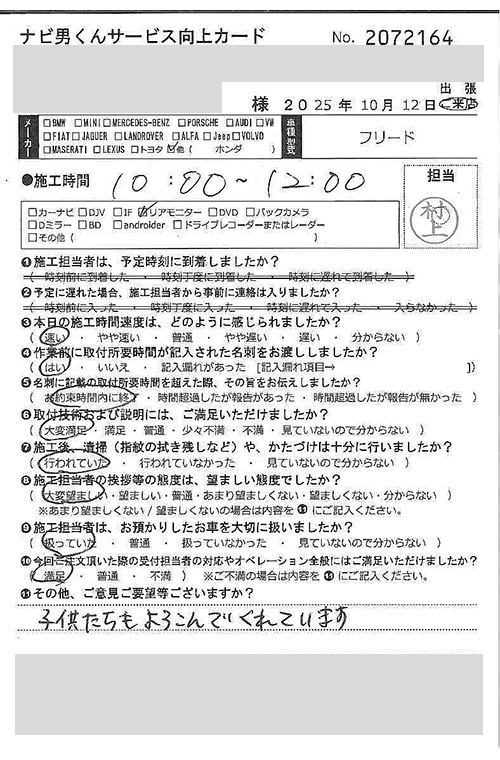 ナビ男くんサービス向上カード No. 2072164
様 2025年10月12日 出張 ご来店
メーカー □BMW □MINI □MERCEDES-BENZ □PORSCHE □AUDI □VW
□FIAT □JAGUER □LANDROVER □ALFA □Jeep □VOLVO
□MASERATI □LEXUS □トヨタ ☑他( ホンダ )
車種型式 フリード
●施工時間 10:00~12:00
担当 村上
□カーナビ □DJV □IF ☑リアモニター □DVD □バックカメラ
□Dミラー □BD □androider □ドライブレコーダーまたはレーダー
□その他( )
❶施工担当者は、予定時刻に到着しましたか?
( 時刻前に到着した ・ 時刻丁度に到着した ・ 時刻に遅れて到着した )
❷予定に遅れた場合、施工担当者から事前に連絡は入りましたか?
( 時刻前に入った ・ 時刻丁度に入った ・ 遅れて入った ・ 入らなかった )
❸本日の施工時間速度は、どのように感じられましたか?
( 速い ・ やや速い ・ 普通 ・ やや遅い ・ 遅い ・ 分からない )
❹作業前に取付所要時間が記入された名刺をお渡ししましたか?
( はい ・ いいえ ・ 記入漏れがあった [記入漏れ項目→ ])
❺名刺に記載の取付所要時間を超えた際、その旨をお伝えしましたか?
(お約束時間内に終了・時間超過したが報告があった・時間超過したが報告が無かった)
❻取付技術および説明には、ご満足いただけましたか?
( 大変満足 ・ 満足 ・ 普通 ・ 少々不満 ・ 不満 ・ 見ていないので分からない )
❼施工後、清掃(指紋の拭き残しなど)や、かたづけは十分に行いましたか?
( 行われていた ・ 行われていなかった ・ 見ていないので分からない )
❽施工担当者の挨拶等の態度は、望ましい態度でしたか?
(大変望ましい・望ましい・普通・あまり望ましくない・望ましくない・分からない)
※あまり望ましくない/望ましくないの場合は内容を⓫にご記入ください。
❾施工担当者は、お預かりしたお車を大切に扱いましたか?
( 扱っていた ・ 普通 ・ 扱っていなかった ・ 見ていないので分からない )
❿今回ご注文頂いた際の受付担当者の対応やオペレーション全般にはご満足いただけましたか?
( 満足 ・ 普通 ・ 不満 ) ※ご不満の場合は内容を⓫にご記入ください。
⓫その他、ご意見ご要望等ございますか?
子供たちもよろこんでくれています